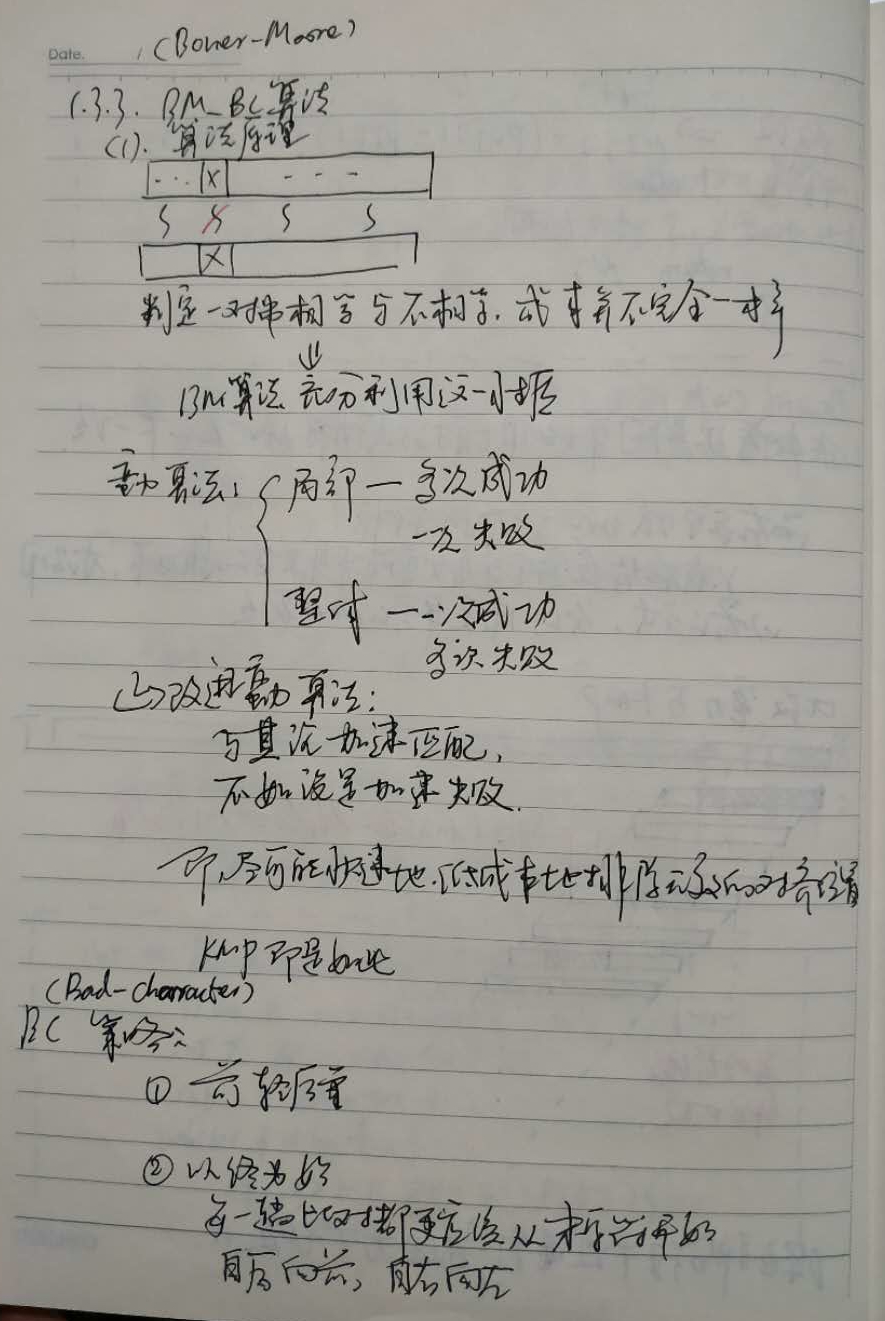 Date.
(Boyer-Moore)
1.3.3. BM_BC算法
(1). 算法原理
... X - - -
X
判定一对串相等与不相等,成本并不完全一样
⇓
BM算法充分利用这一性质
蛮力算法: 局部 — 多次成功
一次失败
整体 — 一次成功
多次失败
=> 改进蛮力算法:
与其说加速匹配,
不如说是加速失败.
即,尽可能快速地.低成本地排除无效的对齐位置
KMP即是如此
(Bad-character)
BC 策略:
① 前轻后重
② 以终为始
每一趟比对都更应该从末字符开始
自后向前, 自右向左